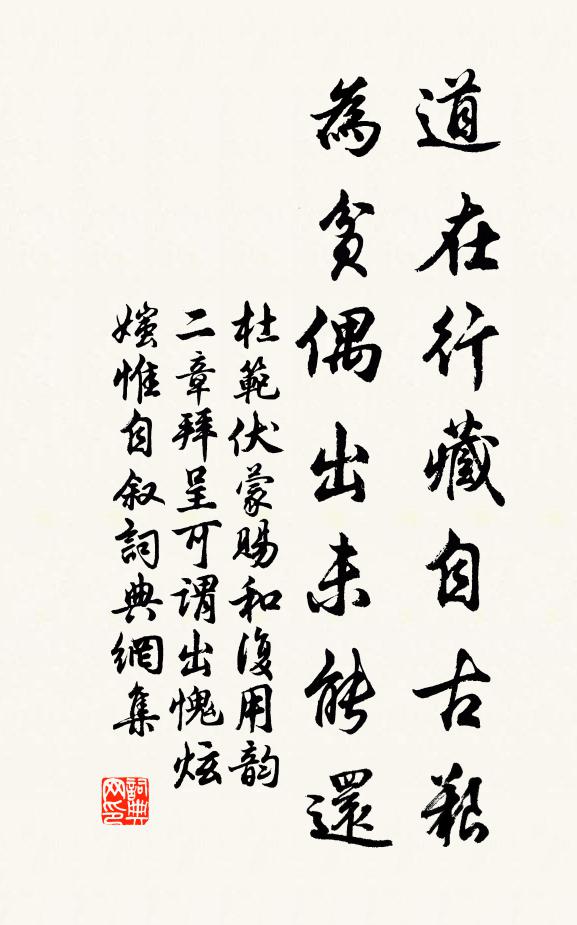 道在行藏自古艱
為貧偶出未能還
杜範伏蒙賜和復用韵
二章拜呈可謂出愧炫
媸惟自叙詞典網集
詞典網印